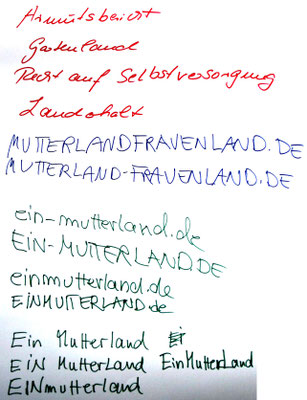 Armutsbericht
Gartenland
Recht auf Selbstversorgung
Landerhalt
MUTTERLANDFRAUENLAND.DE
MUTTERLAND-FRAUENLAND.DE
ein-mutterland.de
EIN-MUTTERLAND.DE
einmutterland.de
EINMUTTERLAND.de
Ein Mutterland
EIN MutterLand EinMutterLand
EINmutterland